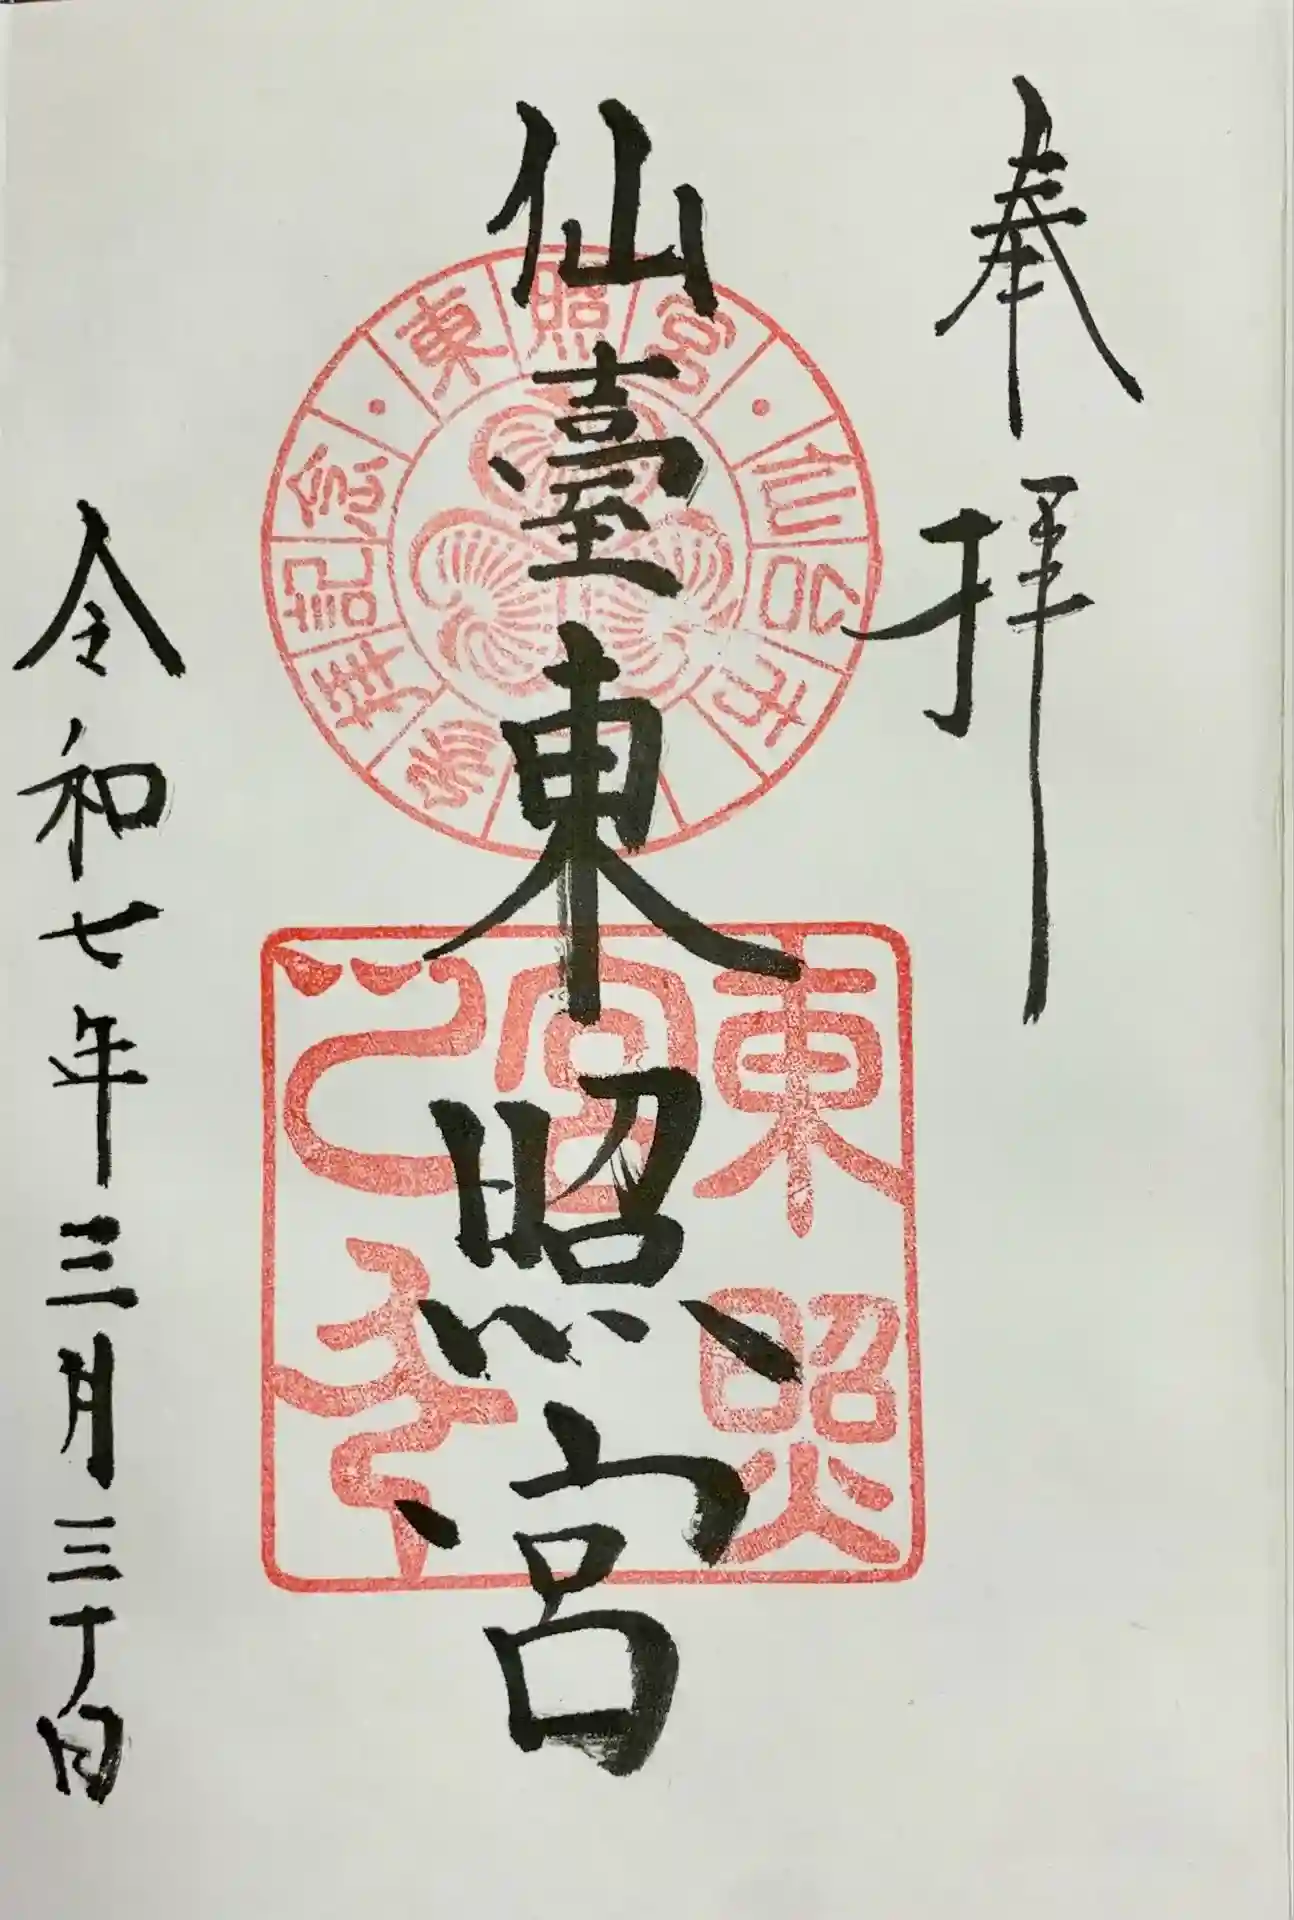 奉拝
仙臺東照宮
令和七年三月三十日
東照宮・仙台市
參拝記念・
東照
宮